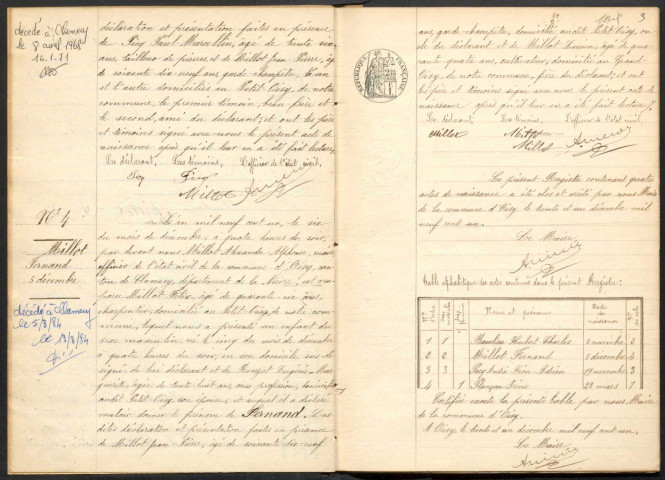 décédé à Clamecy
le 8 avril 1968
14.1.71
déclaration et présentation faites en présence
de Rey Paul Marcelin, âgé de trente six
ans, tailleur de pierres, et de Millot Jean Pierre, âgé
de soixante dix-neuf ans, garde champêtre, l'un
et l'autre domiciliés au Petit Oisy, de notre
commune, le premier témoin, frère et
le second, ami du déclarant; et ont les père
et témoins signé avec nous le présent acte de
naissance après qu'il leur en a été fait lecture.
Le déclarant, Les témoins, L'officier de l'état civil,
Rey
Millot
N° 4
Millot
Fernand
5 décembre
décédé à Clamecy
le 5/8/84
le 13/8/84
L'an mil neuf cent un, le six
du mois de décembre, à quatre heures du soir,
par devant nous Millot Alexandre Alphonse, maire
officier de l'état civil de la commune d'Oisy, can-
ton de Clamecy, département de la Nièvre, est com-
paru Millot Félix, âgé de quarante un ans,
charpentier, domicilié au Petit Oisy de notre com-
mune, lequel nous a présenté un enfant du
sexe masculin, né le cinq du mois de décembre
à quatre heures du soir, en son domicile sus dé-
signé, de lui déclarant et de Eugénie Mar-
guerite, âgée de trente huit ans, sans profession, domiciliée
audit Petit Oisy, son épouse, et auquel il a déclaré
vouloir donner le prénom de Fernand. Les
dites déclaration et présentation faites en présence
de Millot Jean Pierre, âgé de soixante dix-neuf
3
RÉPUBLIQUE FRANÇAISE
ans, garde champêtre, domicilié audit Petit Oisy, on-
cle du déclarant et de Millot Louis, âgé de qua-
rante quatre ans, cultivateur, domicilié au Grand
Oisy, de notre commune, frère du déclarant; et ont
les père et témoins signé avec nous le présent acte de
naissance après qu'il leur en a été fait lecture.
Le déclarant, Les témoins, L'officier de l'état civil,
Millot Millot
Millot
Le présent Registre contenant quatre
actes de naissance a été clos et arrêté par nous Maire
de la commune d'Oisy, le trente et un décembre mil
neuf cent un.
Le Maire
Table alphabétique des actes contenus dans le présent Registre:
Noms et prénoms Date de naissance
1 1 Hubert Charles 2 novembre 2
2 2 Millot Fernand 5 décembre 4
3 3 Rey André Léon Adrien 19 novembre 3
4 1 22 mars 1
Certifié exacte la présente table par nous Maire
de la commune d'Oisy.
A Oisy, le trente et un décembre mil neuf cent un.
Le Maire